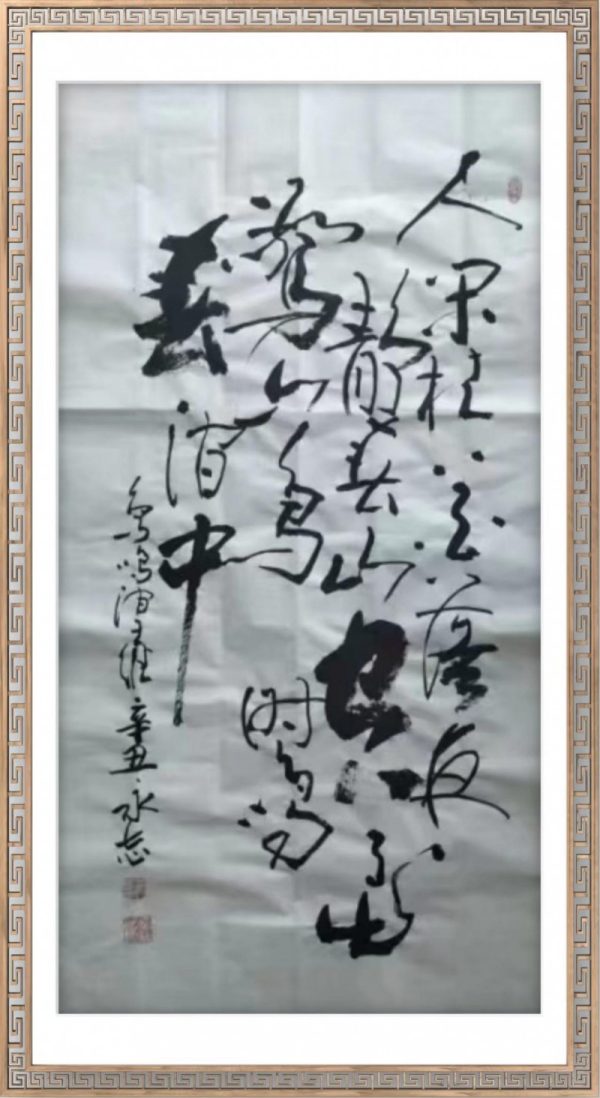 人闲桂花落夜
静春山空月出
驚山鸟时鸣
春涧中
鸟鸣涧王维辛丑永志